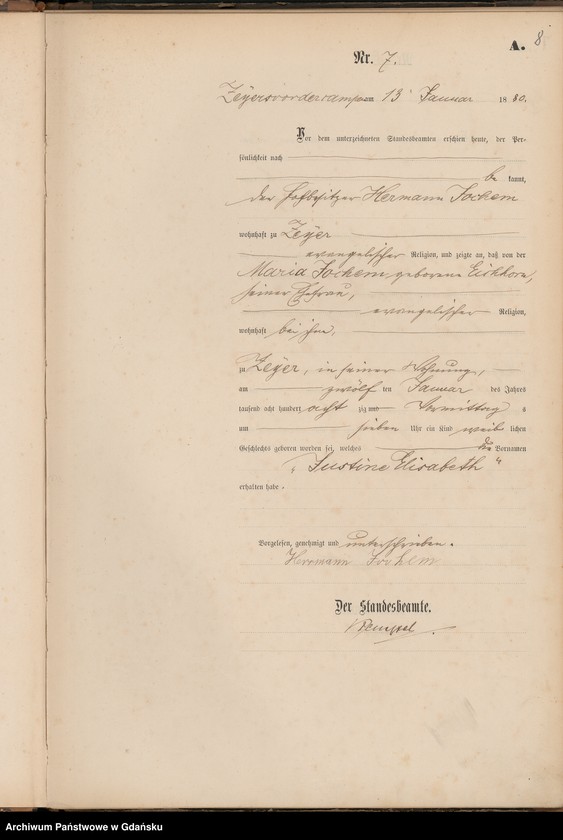 A. 8
Nr. 7.
Zeyersvorderkampen 13 Januar 1880.
Vor dem unterzeichneten Standesbeamten erschien heute, der Per-
sönlichkeit nach
be kannt,
der Hofbesitzer Hermann Jochem
wohnhaft zu Zeyer
evangelischer Religion, und zeigte an, daß von der
Maria Jochem, geborene Eichhorn,
seiner Ehefrau,
evangelischer Religion,
wohnhaft bei ihm,
zu Zeyer, in seiner Wohnung,
am zwölf ten Januar des Jahres
tausend acht hundert acht zig und Vormittag s
um sieben Uhr ein Kind weib lichen
Geschlechts geboren worden sei, welches die Vornamen
„Justine Elisabeth“
erhalten habe.
Vorgelesen, genehmigt und unterschrieben.
Hermann Jochem
Der Standesbeamte.
Archiwum Państwowe w Gdańsku